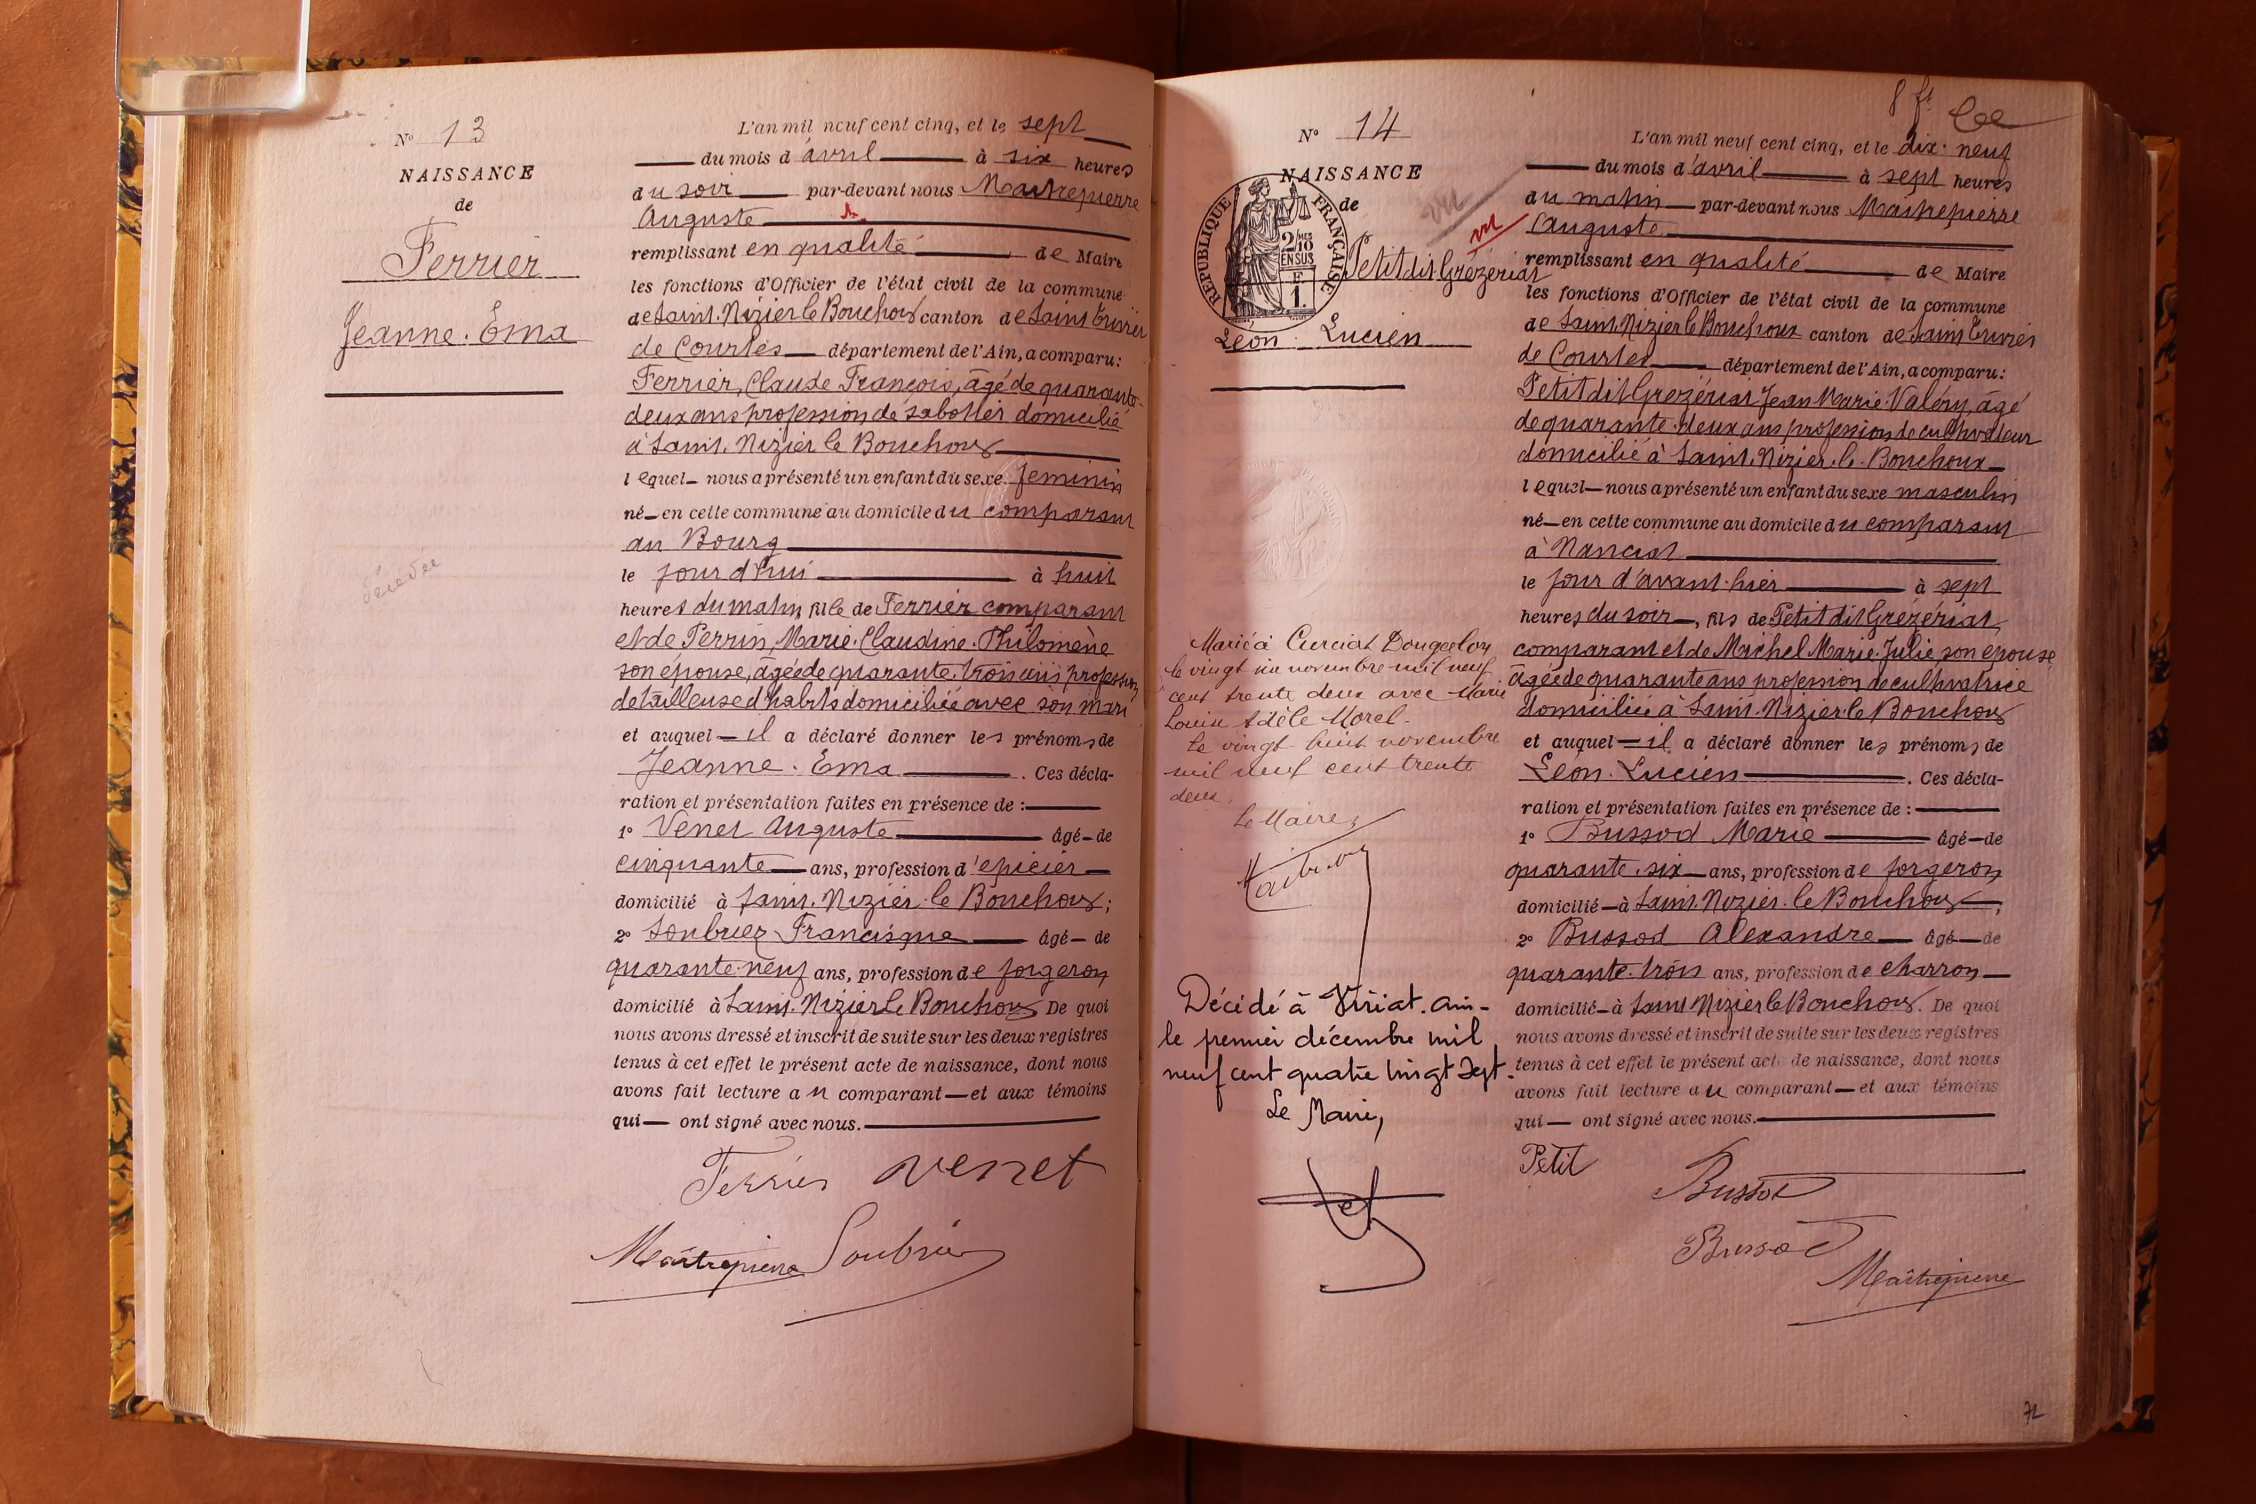 N° 13
NAISSANCE
de
Ferrier
Jeanne. Ema
décédée
L'an mil neuf cent cinq, et le sept
du mois d'avril à six heures
du soir par-devant nous Maitrepierre
Auguste
remplissant en qualité de Maire
les fonctions d'Officier de l'état civil de la commune
de Saint. Nizier le Bouchoux canton de Saint Trivier
de Courtes département de l'Ain, a comparu:
Ferrier, Claude François, âgé de quarante-
deux ans profession de sabotier domicilié
à Saint. Nizier le Bouchoux
lequel nous a présenté un enfant du sexe feminin
né en cette commune au domicile du comparant
au Bourg
le jour d'hui à huit
heures du matin, fille de Ferrier comparant
et de Perrin, Marie. Claudine. Philomène
son épouse, âgée de quarante. trois ans profession
de tailleuse d'habits domiciliée avec son mari
et auquel il a déclaré donner les prénoms de
Jeanne. Ema. Ces décla-
ration et présentation faites en présence de :
1° Venet Auguste âgé de
cinquante ans, profession d'épicier
domicilié à Saint. Nizier. le Bouchoux;
2° Soubriez Francisque âgé de
quarante-neuf ans, profession de forgeron
domicilié à Saint. Nizier le Bouchoux De quoi
nous avons dressé et inscrit de suite sur les deux registres
tenus à cet effet le présent acte de naissance, dont nous
avons fait lecture au comparant et aux témoins
qui ont signé avec nous.
Ferrier venet
Maîtrepierre Soubrié
N° 14
NAISSANCE
de
REPUBLIQUE FRANÇAISE
2/10 EN SUS
1F.
vu
vu
Petit dit Grézériat
Léon. Lucien
Marié à Curciat Dongalon
le vingt six novembre mil neuf
cent trente deux avec Marie
Louise Adèle Morel.
Le vingt huit novembre
mil neuf cent trente
deux.
Le Maire,
Décédé à Viriat. Ain-
le premier décembre mil
neuf cent quatre vingt sept.
Le Maire,
L'an mil neuf cent cinq, et le dix. neuf
du mois d'avril à sept heures
du matin par-devant nous Maitrepierre
Auguste
remplissant en qualité de Maire
les fonctions d'Officier de l'état civil de la commune
de Saint. Nizier le Bouchoux canton de Saint Trivier
de Courtes département de l'Ain, a comparu:
Petit dit Grezériat Jean Marie. Valéry, âgé
de quarante. deux ans profession de cultivateur
domicilié à Saint. Nizier. le. Bouchoux
lequel nous a présenté un enfant du sexe masculin
né en cette commune au domicile du comparant
à Nanciat
le jour d'avant-hier à sept
heures du soir, fils de Petit dit Grézériat,
comparant et de Michel Marie. Julie son épouse,
âgée de quarante ans profession de cultivatrice
domiciliée à Saint. Nizier. le Bouchoux
et auquel il a déclaré donner les prénoms de
Léon. Lucien. Ces décla-
ration et présentation faites en présence de :
1° Bussod Marie âgé de
quarante. six ans, profession de forgeron
domicilié à Saint. Nizier. le Bouchoux;
2° Bussod Alexandre âgé de
quarante. trois ans, profession de charron
domicilié à Saint Nizier le Bouchoux. De quoi
nous avons dressé et inscrit de suite sur les deux registres
tenus à cet effet le présent acte de naissance, dont nous
avons fait lecture au comparant et aux témoins
qui ont signé avec nous.
Petit Bussod
Bussod
Maîtrepierre